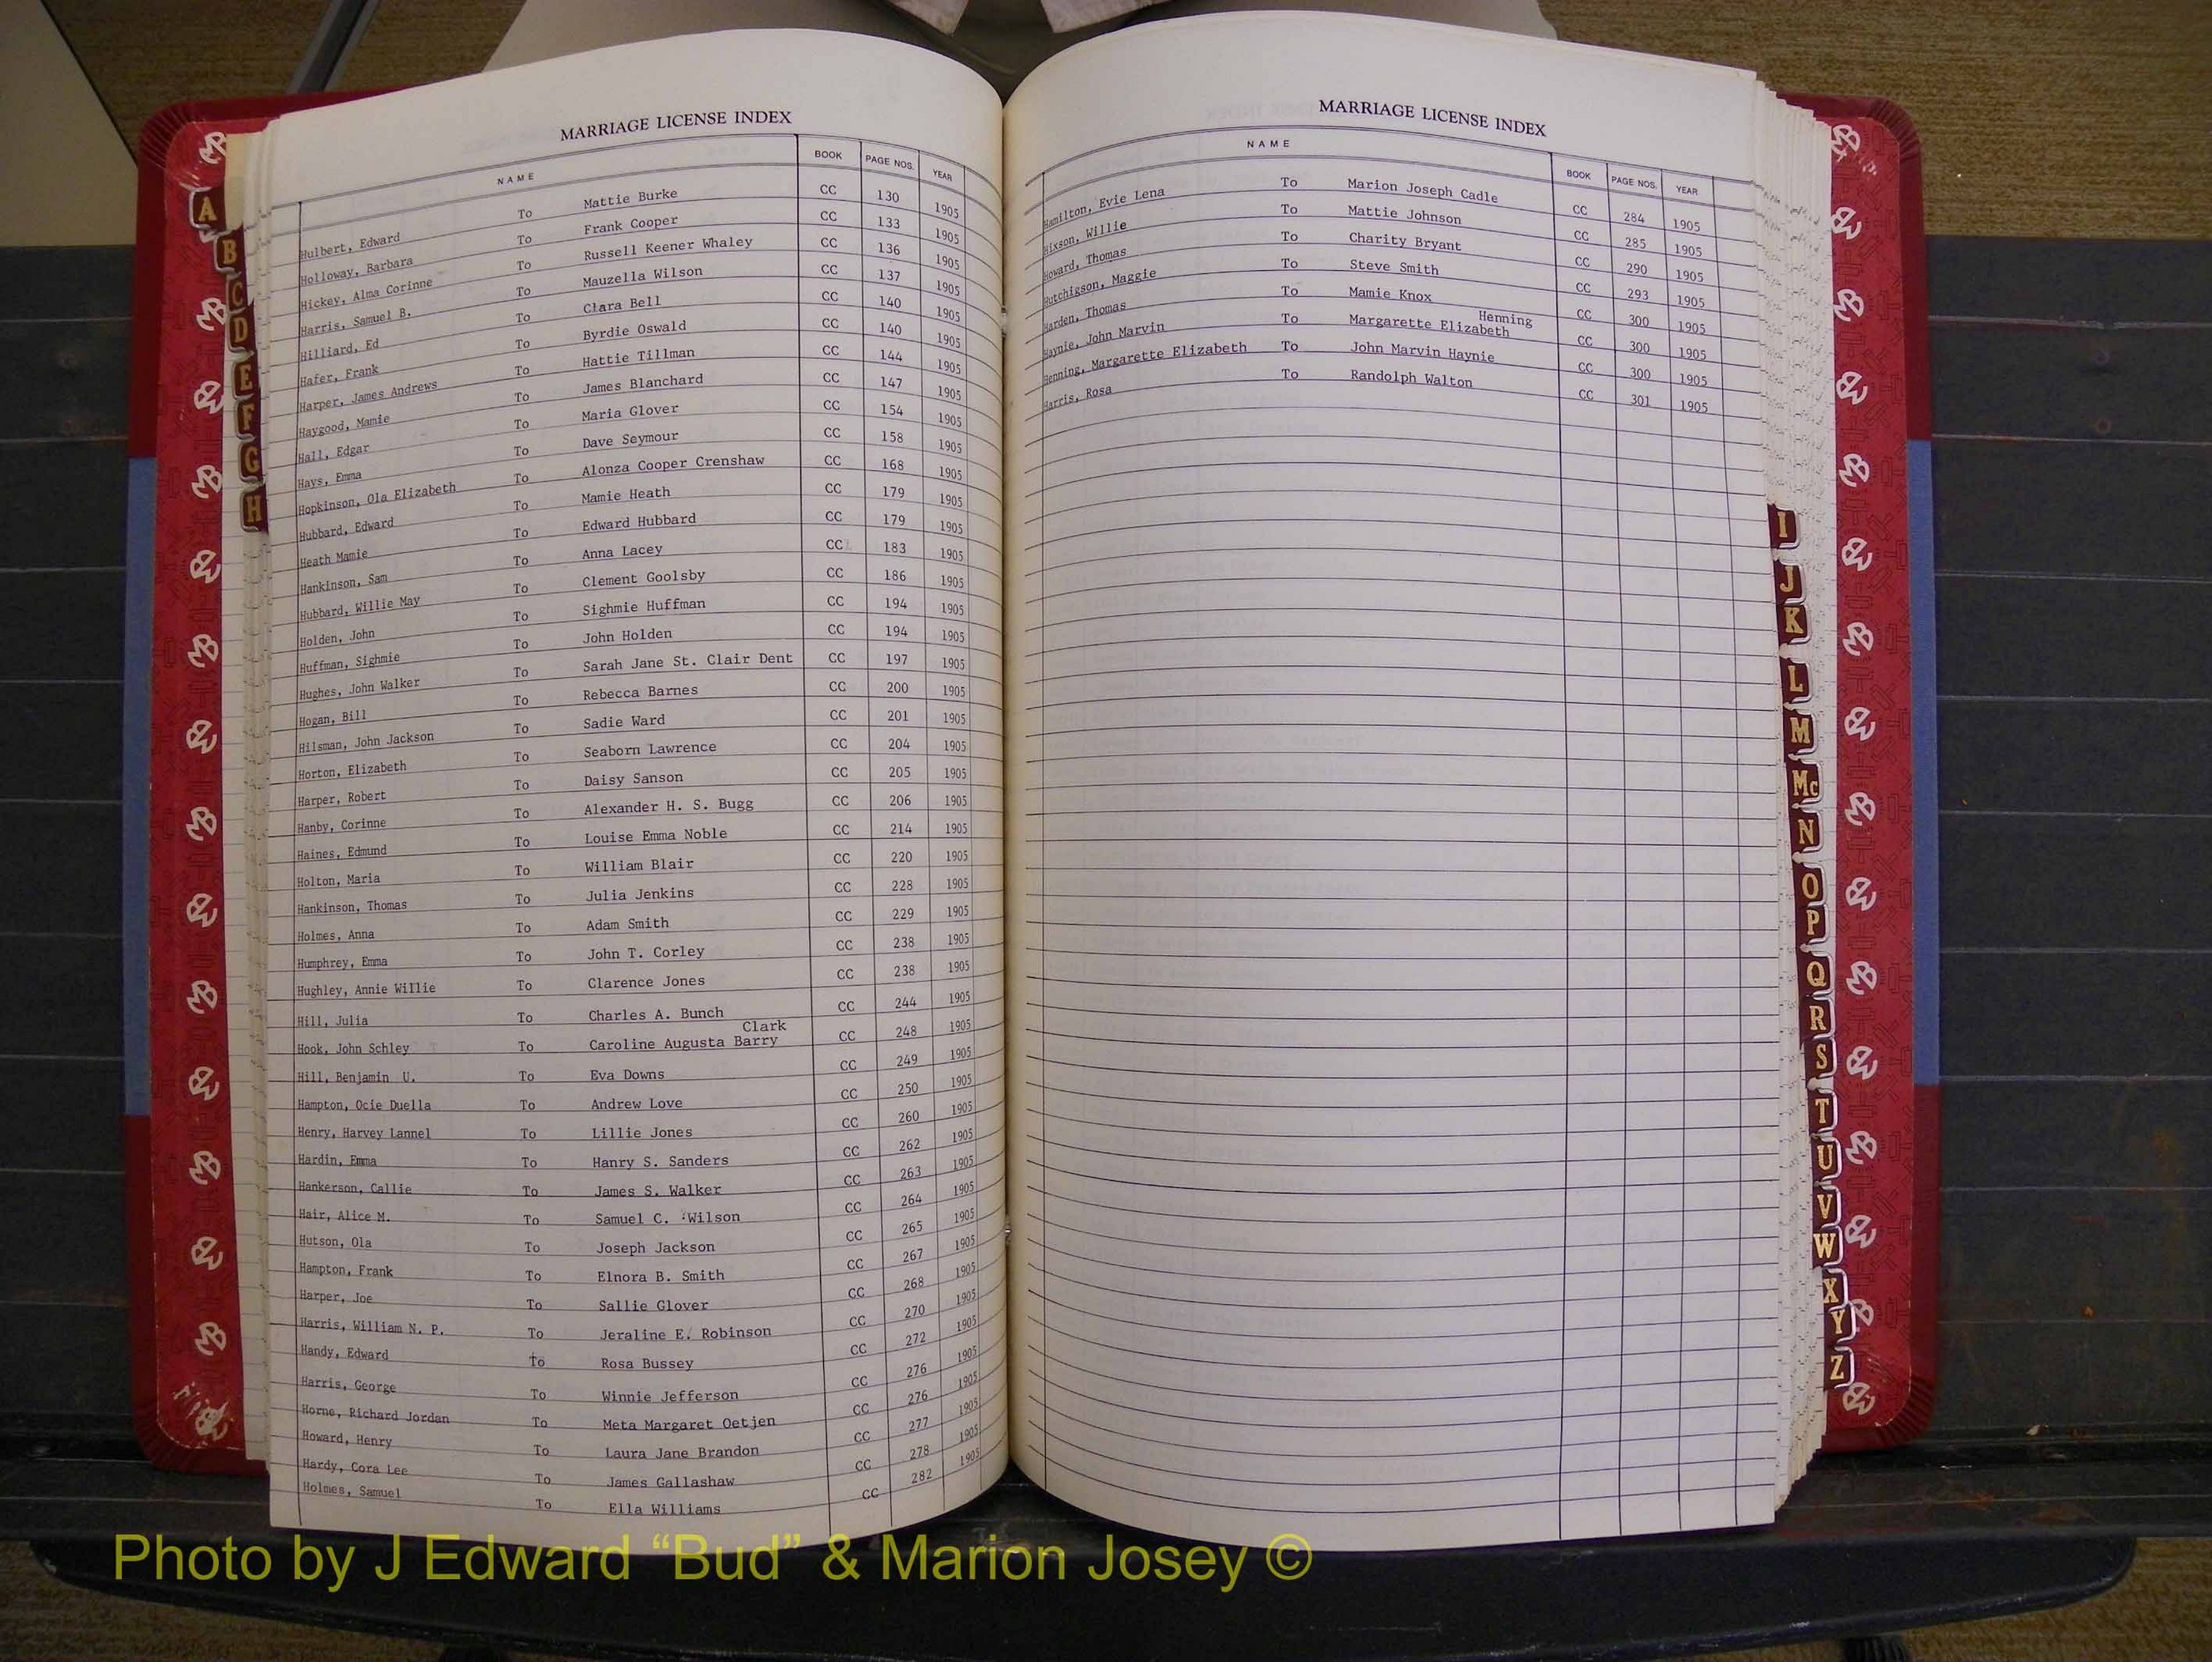 MARRIAGE LICENSE INDEX
NAME BOOK PAGE NOS. YEAR
Hulbert, Edward To Mattie Burke CC 130 1905
Holloway, Barbara To Frank Cooper CC 133 1905
Hickey, Alma Corinne To Russell Keener Whaley CC 136 1905
Harris, Samuel B. To Mauzella Wilson CC 137 1905
Hilliard, Ed To Clara Bell CC 140 1905
Hafer, Frank To Byrdie Oswald CC 140 1905
Harper, James Andrews To Hattie Tillman CC 144 1905
Haygood, Mamie To James Blanchard CC 147 1905
Hall, Edgar To Maria Glover CC 154 1905
Hays, Emma To Dave Seymour CC 158 1905
Hopkinson, Ola Elizabeth To Alonza Cooper Crenshaw CC 168 1905
Hubbard, Edward To Mamie Heath CC 179 1905
Heath Mamie To Edward Hubbard CC 179 1905
Hankinson, Sam To Anna Lacey CC 183 1905
Hubbard, Willie May To Clement Goolsby CC 186 1905
Holden, John To Sighmie Huffman CC 194 1905
Huffman, Sighmie To John Holden CC 194 1905
Hughes, John Walker To Sarah Jane St. Clair Dent CC 197 1905
Hogan, Bill To Rebecca Barnes CC 200 1905
Hilsman, John Jackson To Sadie Ward CC 201 1905
Horton, Elizabeth To Seaborn Lawrence CC 204 1905
Harper, Robert To Daisy Sanson CC 205 1905
Hanby, Corinne To Alexander H. S. Bugg CC 206 1905
Haines, Edmund To Louise Emma Noble CC 214 1905
Holton, Maria To William Blair CC 220 1905
Hankinson, Thomas To Julia Jenkins CC 228 1905
Holmes, Anna To Adam Smith CC 229 1905
Humphrey, Emma To John T. Corley CC 238 1905
Hughley, Annie Willie To Clarence Jones CC 238 1905
Hill, Julia To Charles A. Bunch CC 244 1905
Clark
Hook, John Schley To Caroline Augusta Barry CC 248 1905
Hill, Benjamin U. To Eva Downs CC 249 1905
Hampton, Ocie Duella To Andrew Love CC 250 1905
Henry, Harvey Lannel To Lillie Jones CC 260 1905
Hardin, Emma To Hanry S. Sanders CC 262 1905
Hankerson, Callie To James S. Walker CC 263 1905
Hair, Alice M. To Samuel C. Wilson CC 264 1905
Hutson, Ola To Joseph Jackson CC 265 1905
Hampton, Frank To Elnora B. Smith CC 267 1905
Harper, Joe To Sallie Glover CC 268 1905
Harris, William N. P. To Jeraline E. Robinson CC 270 1905
Handy, Edward To Rosa Bussey CC 272 1905
Harris, George To Winnie Jefferson CC 276 1905
Horne, Richard Jordan To Meta Margaret Oetjen CC 276 1905
Howard, Henry To Laura Jane Brandon CC 277 1905
Hardy, Cora Lee To James Gallashaw CC 278 1905
Holmes, Samuel To Ella Williams CC 282 1905
MARRIAGE LICENSE INDEX
NAME BOOK PAGE NOS. YEAR
Hamilton, Evie Lena To Marion Joseph Cadle CC 284 1905
Hixson, Willie To Mattie Johnson CC 285 1905
Howard, Thomas To Charity Bryant CC 290 1905
Hutchigson, Maggie To Steve Smith CC 293 1905
Harden, Thomas To Mamie Knox CC 300 1905
Henning
Haynie, John Marvin To Margarette Elizabeth CC 300 1905
Henning, Margarette Elizabeth To John Marvin Haynie CC 300 1905
Harris, Rosa To Randolph Walton CC 301 1905
A
B
C
D
E
F
G
H
I
J
K
L
M
Mc
N
O
P
Q
R
S
T
U
V
W
X
Y
Z
Photo by J Edward “Bud” & Marion Josey ©